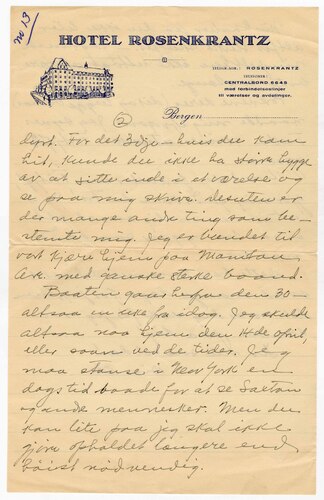 no 13
HOTEL ROSENKRANTZ
TELEGR.-ADR.: ROSENKRANTZ
TELEFONER:
CENTRALBORD 6645
med forbindelseslinjer
til værelser og avdelinger.
Bergen
2
lyst. For det 3dje – hvis du kom
hit, kunde du ikke ha større hygge
av at sitte inde i et værelse og
se paa mig skrive. Desuten er
der mange andre ting som be-
stemte mig. Jeg er bundet til
vort kjære hjem paa Manitou
Ave. med ganske sterke baand.
Baaten gaar herfra den 30-
altsaa en uke fra idag. Jeg skulde
altsaa naa hjem den 14de april,
eller saan ved de tider. Jeg
maa stanse i New York en
dags tid baade for at se Saxton
og andre mennesker. Men du
kan lite paa jeg skal ikke
gjøre opholdet længere end
høist nødvendig.